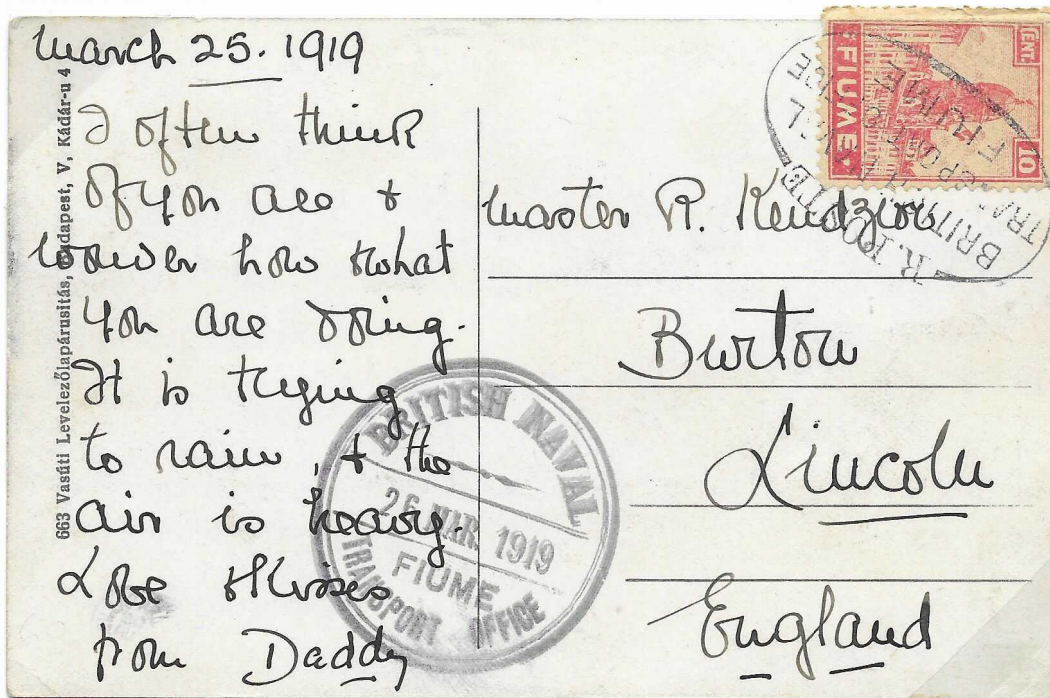 March 25. 1919
I often think
of you all &
wonder how & what
you are doing.
It is trying
to rain, & the
air is heavy.
Love & Kisses
from Daddy
663 Vasúti Levelezőlapárusitás, Budapest, V, Kádár-u 4
BRITISH NAVAL
26 MAR. 1919
FIUME
TRANSPORT OFFICE
CENT.
FIUME
10
BRITISH
TRANSPORT
FIUME
Master R.
Burton
Lincoln
England